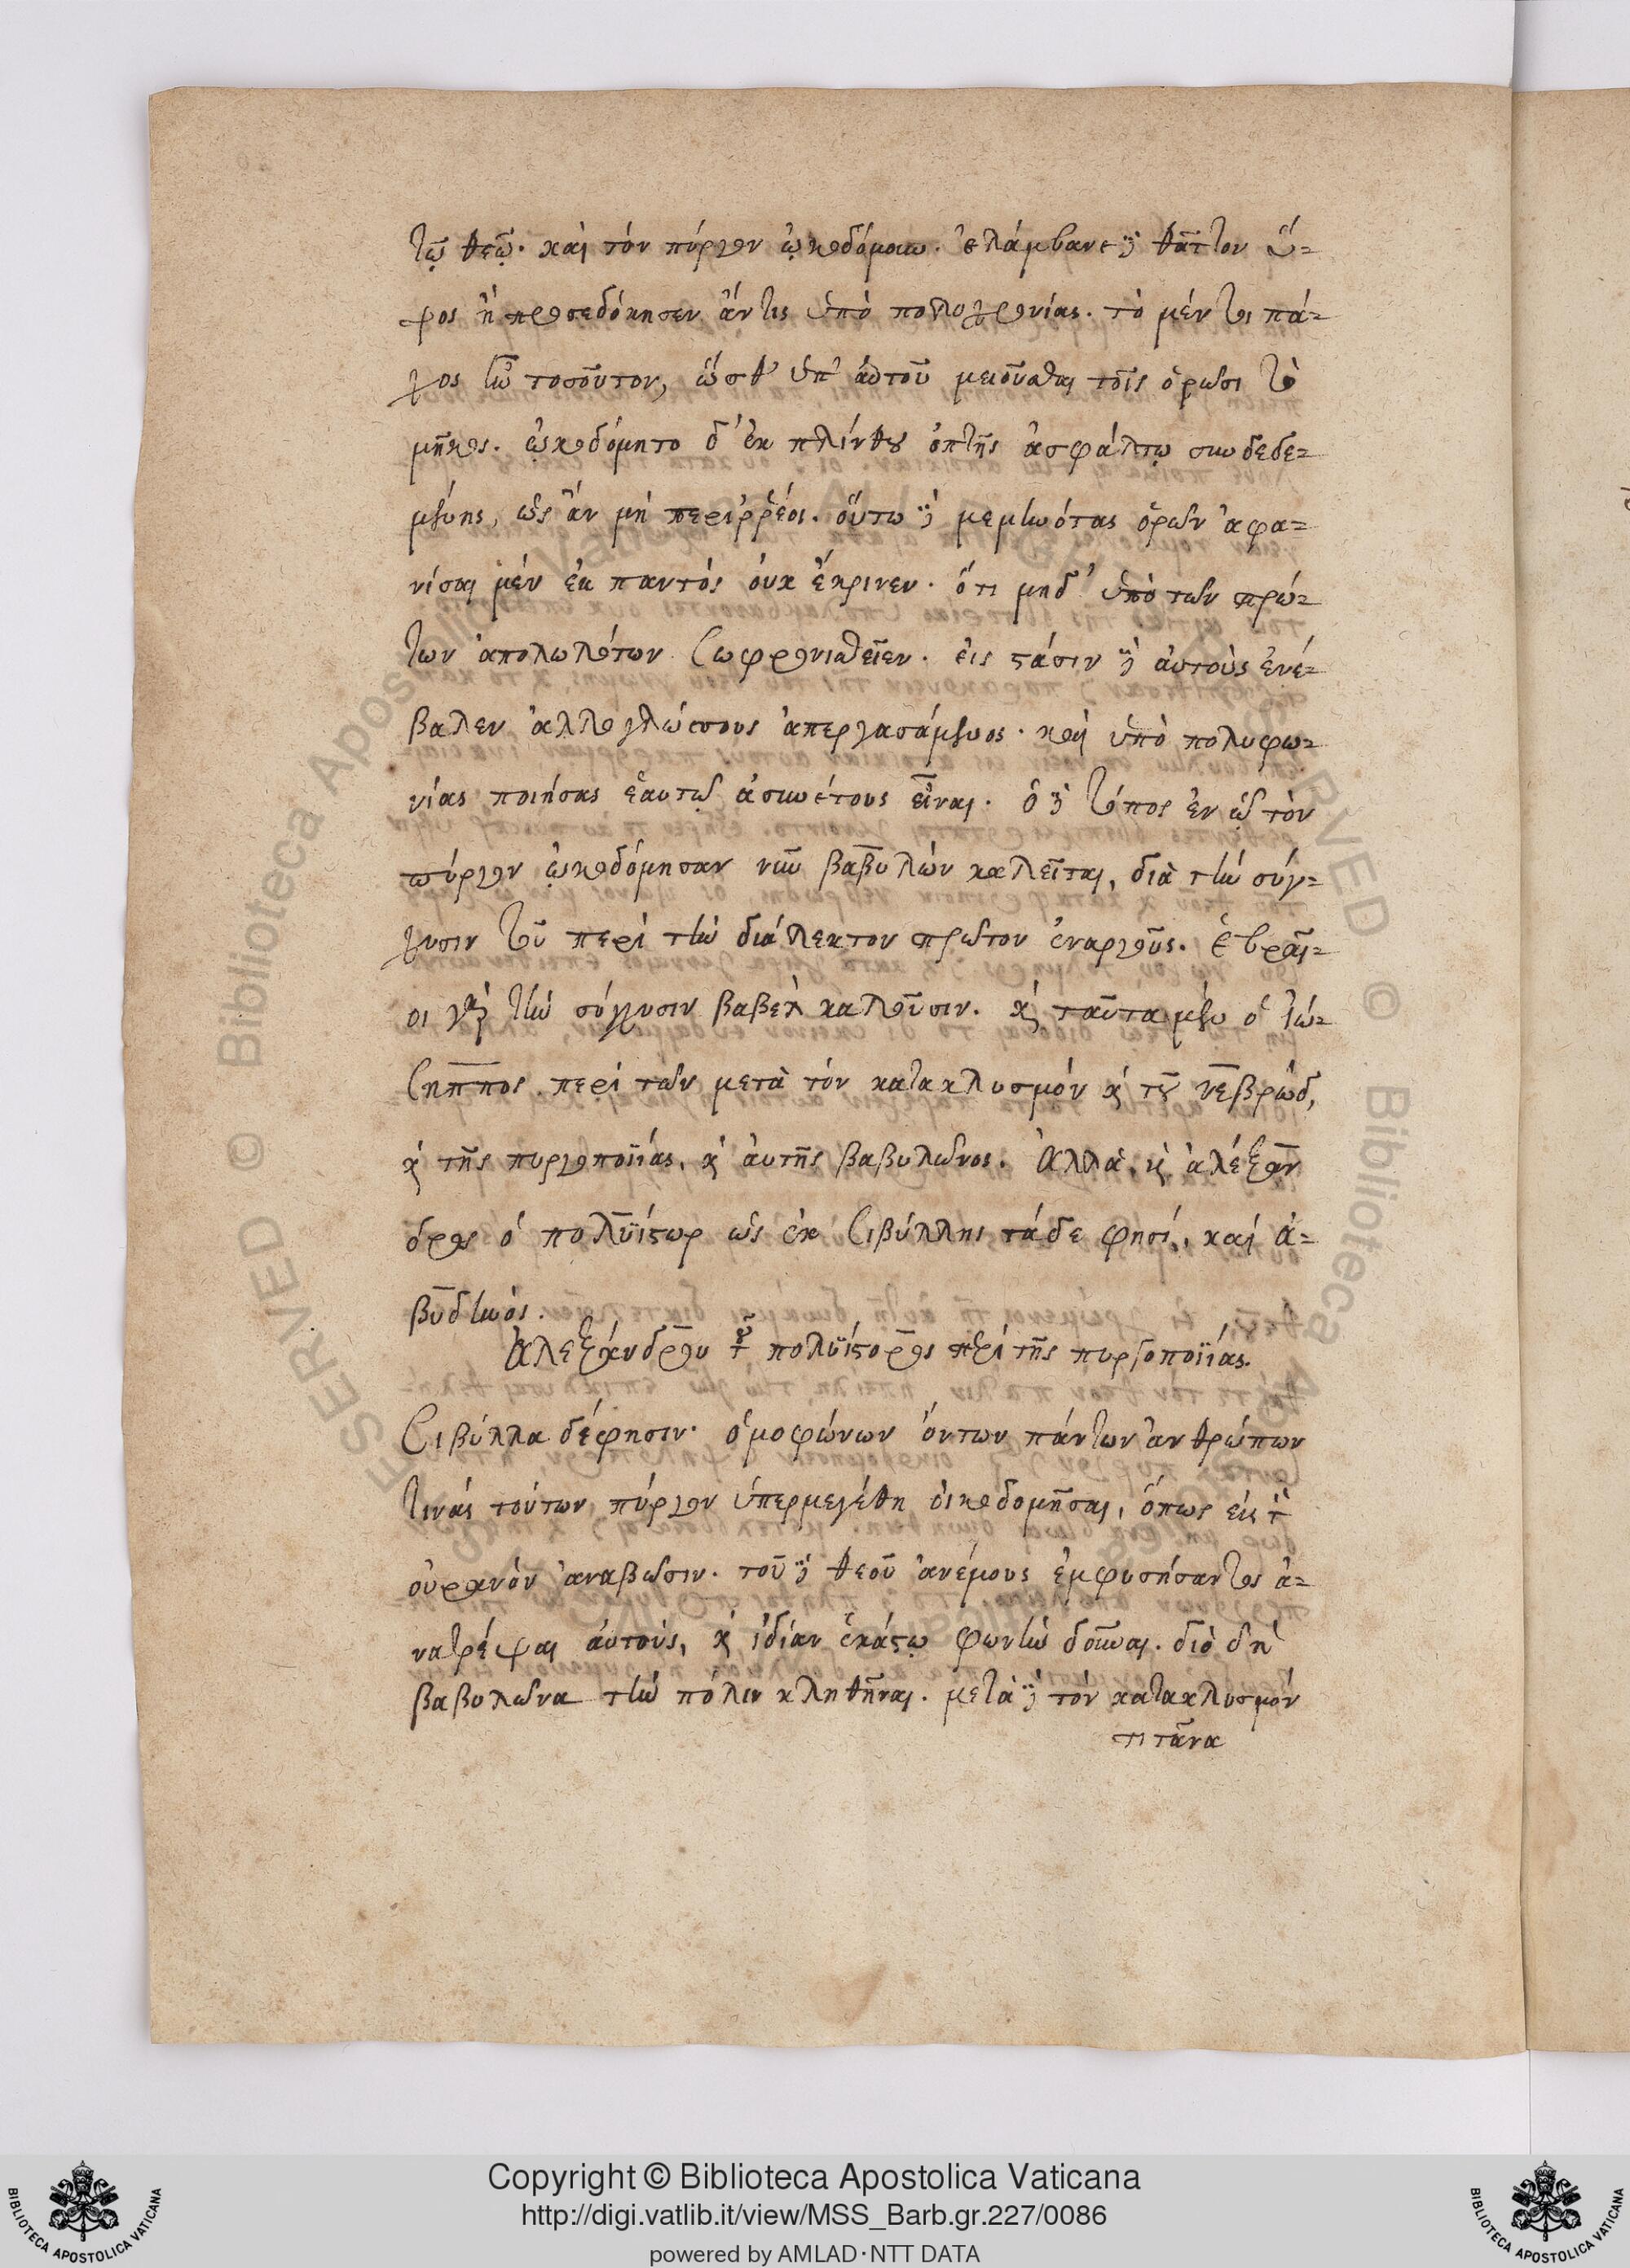 τῷ θεῷ. καὶ τὸν πύργον ᾠκοδόμουν. ἐλάμβανε δὲ θᾶττον ὕ-
ψος ἢ προσεδόκησεν ἄν τις ὑπὸ πολυχρονίας. τὸ μέντοι πά-
χος ἦν τοσοῦτον, ὥσθ' ὑπ' αὐτοῦ μειοῦσθαι τοῖς ὁρῶσι τὸ
μῆκος. ᾠκοδόμητο δ' ἐκ πλίνθου ὀπτῆς ἀσφάλτῳ συνδεδε-
μένης, ὡς ἂν μὴ περιῤῥέοι. οὕτω δὲ μεμηνότας ὁρῶν ἀφα-
νίσαι μὲν ἐκ παντὸς οὐκ ἔκρινεν. ὅτι μηδ' ὑπὸ τῶν πρώ-
των ἀπολωλότων σωφρονισθεῖεν. εἰς στάσιν δὲ αὐτοὺς ἐνέ-
βαλεν ἀλλογλώσσους ἀπεργασάμενος. καὶ ὑπὸ πολυφω-
νίας ποιήσας ἑαυτῶν ἀσυνέτους εἶναι. ὁ δὲ τόπος ἐν ᾧ τὸν
πύργον ᾠκοδόμησαν νῦν βαβυλὼν καλεῖται, διὰ τὴν σύγ-
χυσιν τοῦ περὶ τὴν διάλεκτον πρῶτον ἐναργοῦς. ἑβραῖ-
οι γὰρ τὴν σύγχυσιν βαβελ καλοῦσιν. καὶ ταῦτα μὲν ὁ ἰώ-
σηππος περὶ τῶν μετὰ τὸν κατακλυσμὸν καὶ τοῦ νεβρώδ,
καὶ τῆς πυργοποιΐας, καὶ αὐτῆς βαβυλῶνος. Ἀλλὰ καὶ ἀλέξαν
δρος ὁ πολυΐστωρ ὡς ἐκ σιβύλλης τάδε φησί, καὶ ἀ-
βυδηνός.
Ἀλεξάνδρου τοῦ πολυΐστορος περὶ τῆς πυργοποιΐας.
Σιβύλλα δέ φησιν. ὁμοφώνων ὄντων πάντων ἀνθρώπων
τινὰς τούτων πύργον ὑπερμεγέθη οἰκοδομῆσαι, ὅπως εἰς τὸν
οὐρανὸν ἀναβῶσιν. τοῦ δὲ θεοῦ ἀνέμους ἐμφυσήσαντος ἀ-
νατρέψαι αὐτούς, καὶ ἰδίαν ἑκάστῳ φωνὴν δοῦναι. διὸ δὴ
βαβυλῶνα τὴν πόλιν κληθῆναι. μετὰ δὲ τὸν κατακλυσμόν
τιτᾶνα
Copyright © Biblioteca Apostolica Vaticana
http://digi.vatlib.it/view/MSS_Barb.gr.227/0086
powered by AMLAD·NTT DATA